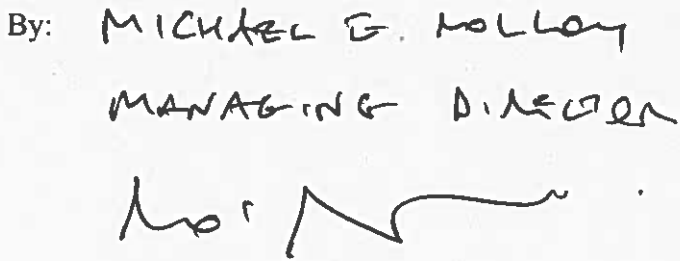 By: MICHAEL G. MOLLOY
MANAGING DIRECTOR